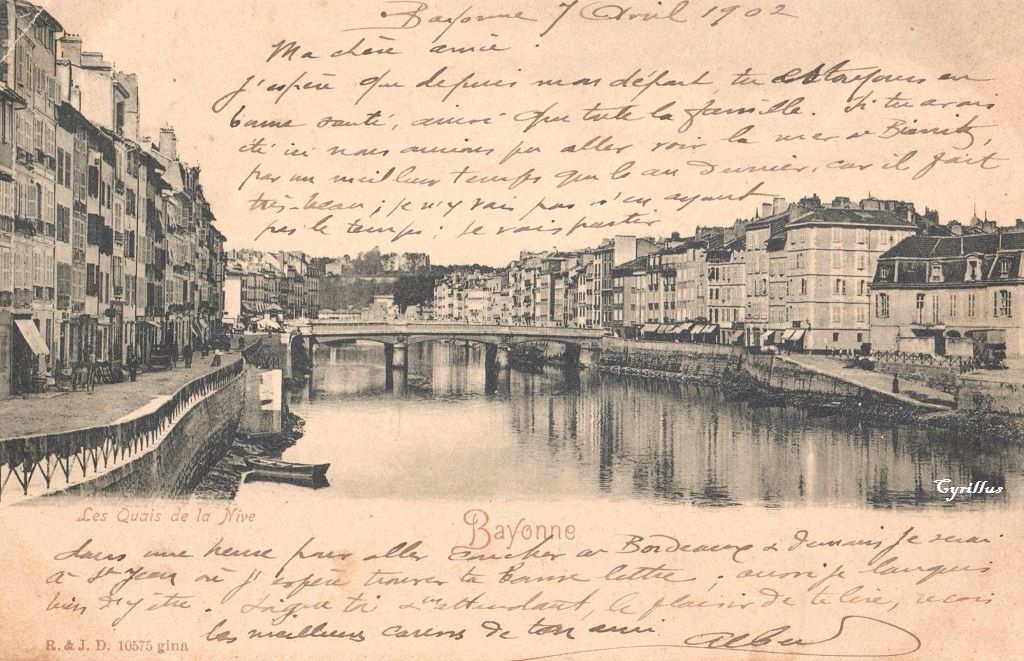 Bayonne 7 Avril 1902
Ma chère amie
J'espère que depuis mon départ, tu es toujours en
bonne santé, ainsi que toute la famille. Si tu avais
été ici nous aurions pu aller voir la mer à Biarritz,
par un meilleur temps que l'an dernier, car il fait
très-beau ; je n'y vais pas n'en ayant
pas le temps ; je vais partir
Cyrillus
Les Quais de la Nive
Bayonne
dans une heure pour aller coucher à Bordeaux & demain je serai
à St Jean où j'espère trouver ta bonne lettre ; aussi je languis
bien d'y être. En attendant, le plaisir de te lire, reçois
les meilleurs de ton ami
Albert
R. & J. D. 10575 gina